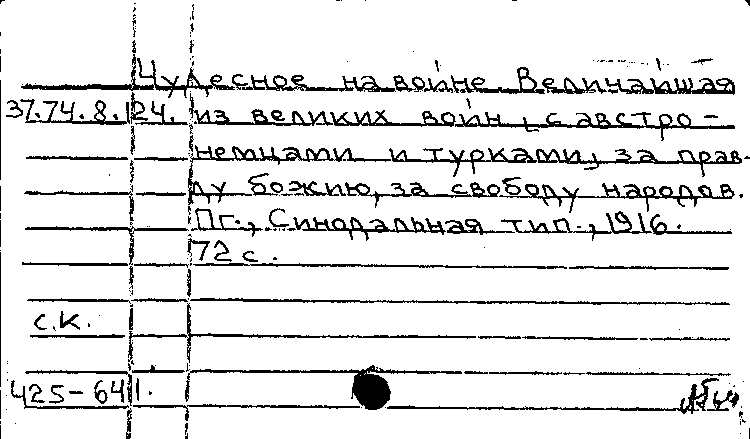 Чудесное на войне. Величайшая
37.74.8.124. из великих войн [с австро-
немцами и турками, за прав-
ду божию, за свободу народов.
Пг., Синодальная тип., 1916.
72 с.
с.к.
425-641.